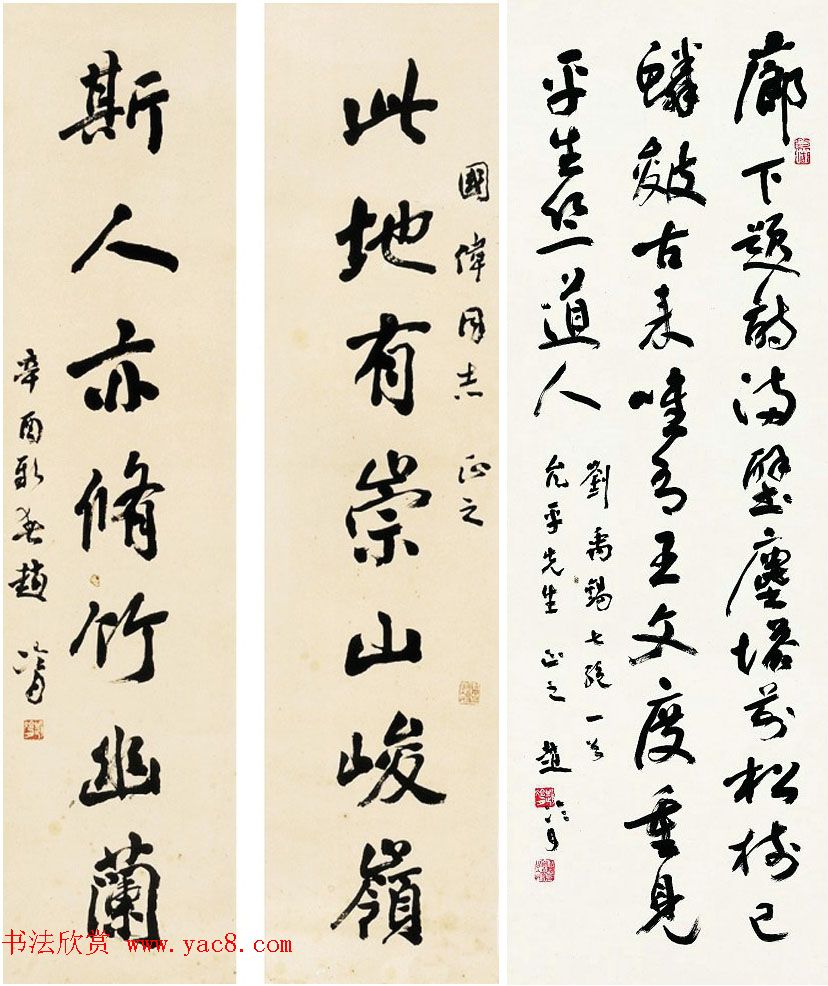 廊下題詩滿壁塵塔前松樹已
鱗皴古來唯有王文度重見
平生竺道人
劉禹錫七絕一首
允平先生 正之 趙冷月
國偉同志 正之
此地有崇山峻嶺
斯人亦脩竹幽蘭
辛酉新春趙冷月
书法欣赏 www.yac8.com